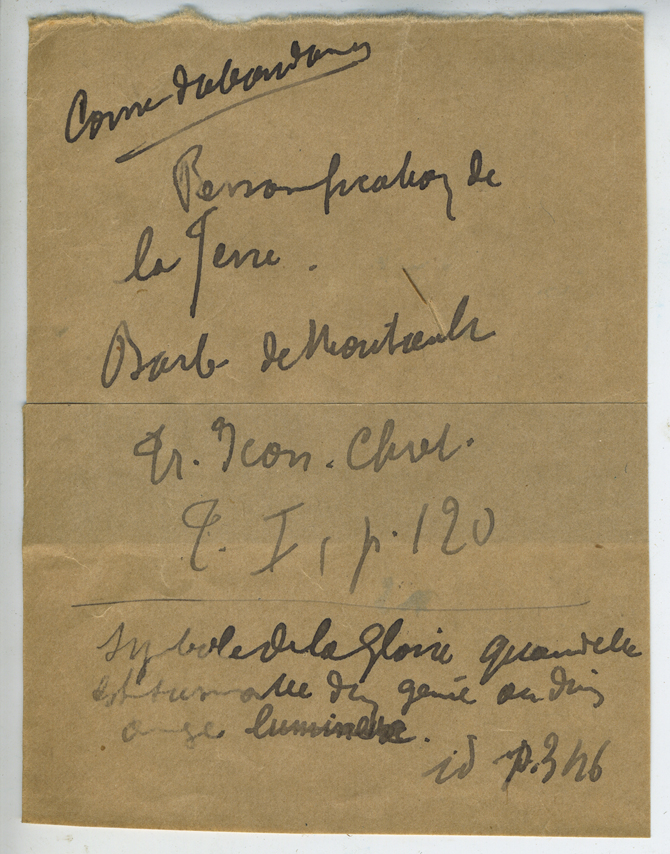 Corne d'abondance
Personnification de
la Terre.
Barb. de Montault
Tr. Icon. Chret.
T. I, p. 120
Symbole de la Gloire quand elle
est surmontée d'un génie ou d'un
ange lumineux.
id p. 346